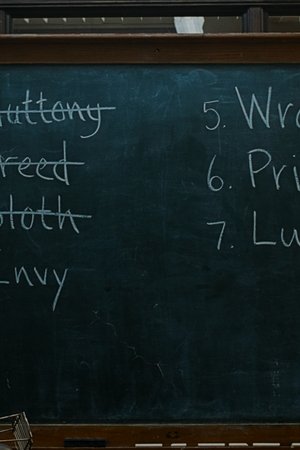 luttony
reed
loth
Envy
5. Wra
6. Pri
7. Lu